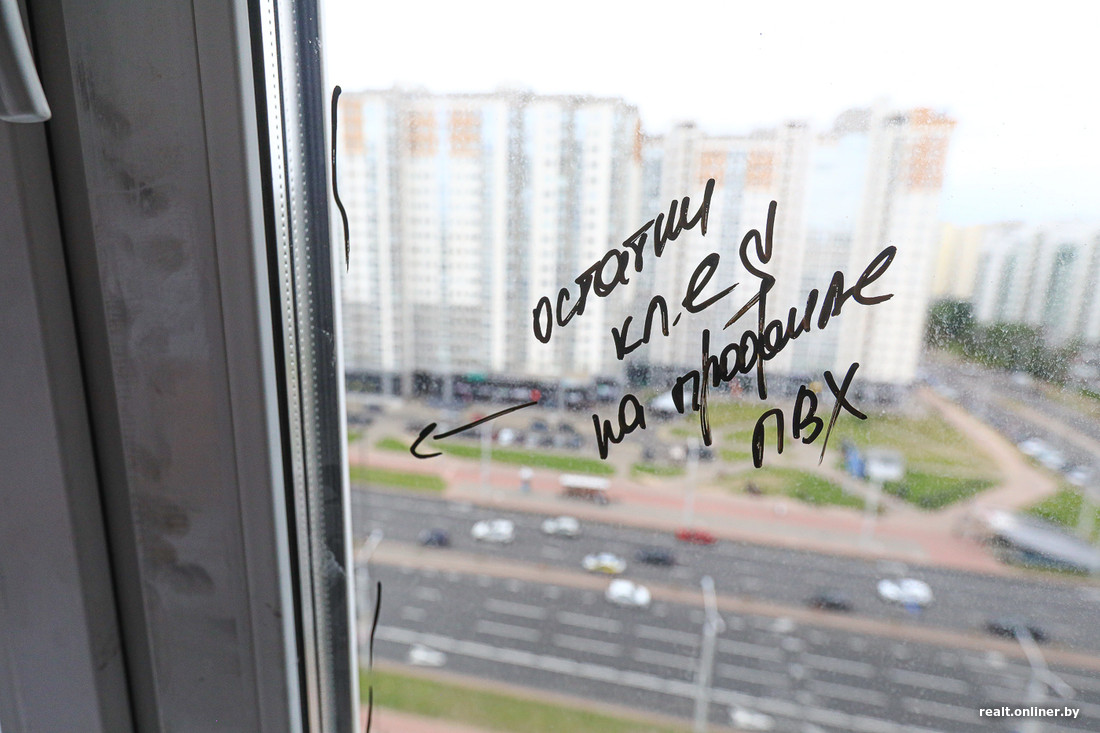 остатки
клея
на профиле
ПВХ
realt.onliner.by